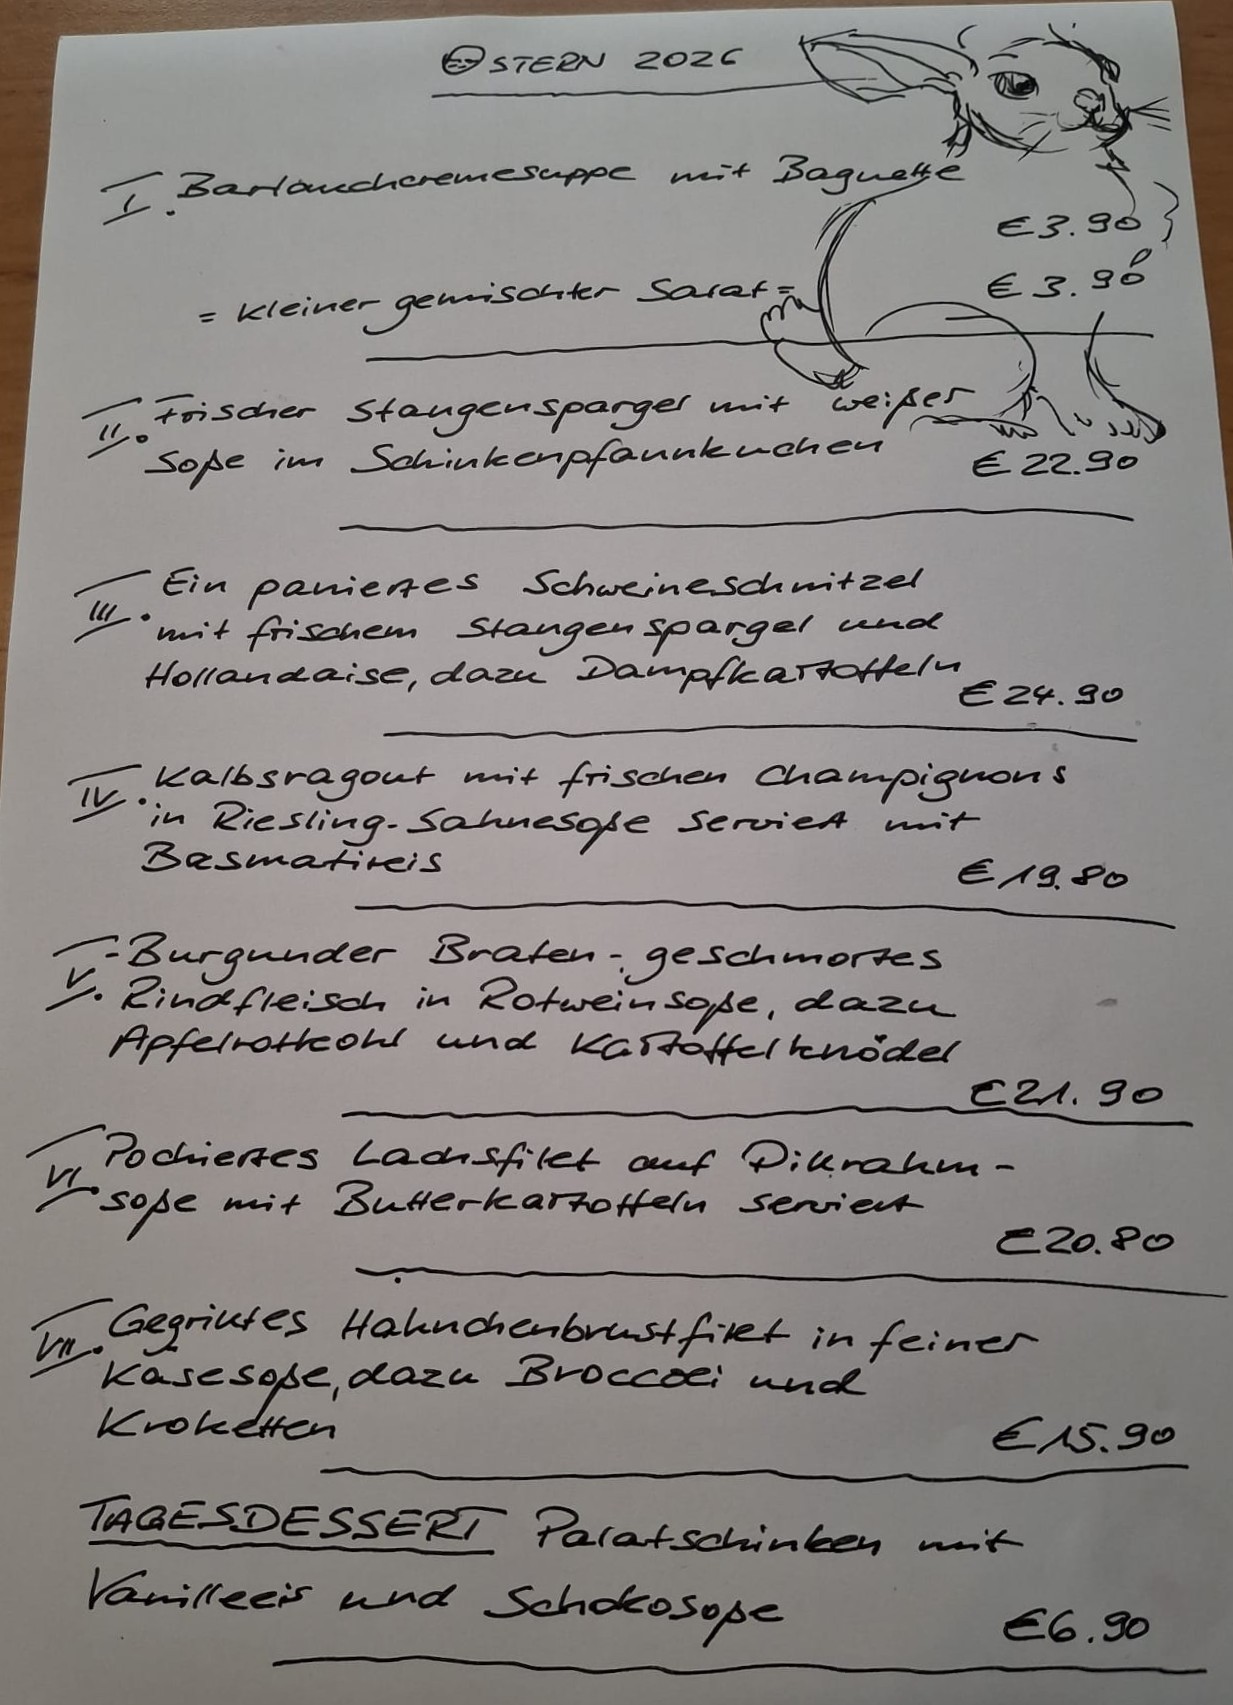 OSTERN 2026
I. Bärlauchcremesuppe mit Baguette
€ 3.90
= kleiner gemischter Salat =
€ 3.90
II. Frischer Stangenspargel mit weißer
Soße im Schinkenpfannkuchen
€ 22.90
III. Ein paniertes Schweineschnitzel
mit frischem Stangenspargel und
Hollandaise, dazu Dampfkartoffeln
€ 24.90
IV. Kalbsragout mit frischen Champignons
in Riesling-Sahnesoße serviert mit
Basmatireis
€ 19.80
V. -Burgunder Braten-, geschmortes
Rindfleisch in Rotweinsoße, dazu
Apfelrotkohl und Kartoffelknödel
€ 21.90
VI. Pochiertes Lachsfilet auf Dillrahm-
soße mit Butterkartoffeln serviert
€ 20.80
VII. Gegrilltes Hähnchenbrustfilet in feiner
Käsesoße, dazu Broccoli und
Kroketten
€ 15.90
TAGESDESSERT Palatschinken mit
Vanilleeis und Schokosoße
€ 6.90